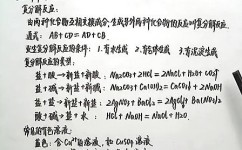 复分解反应:
由两种化合物互相交换成分,生成另外两种化合物的反应叫复分解反应.
通式: AB+CD=AD+CB.
发生复分解反应的条件: 1.有水生成 2.有气体生成 3.有沉淀生成
复分解反应的类型:
盐+酸→新盐+新酸: Na₂CO₃+2HCl=2NaCl+H₂O+CO₂↑
盐+碱→新盐+新碱: Na₂CO₃+Ca(OH)₂=CaCO₃↓+2NaOH
盐+盐→新盐+新盐: 2AgNO₃+BaCl₂=2AgCl↓+Ba(NO₃)₂
酸+碱→盐+水: HCl+NaOH=NaCl+H₂O.
常见的有色溶液:
蓝色: 含Cu²⁺的溶液, 如CuSO₄溶液